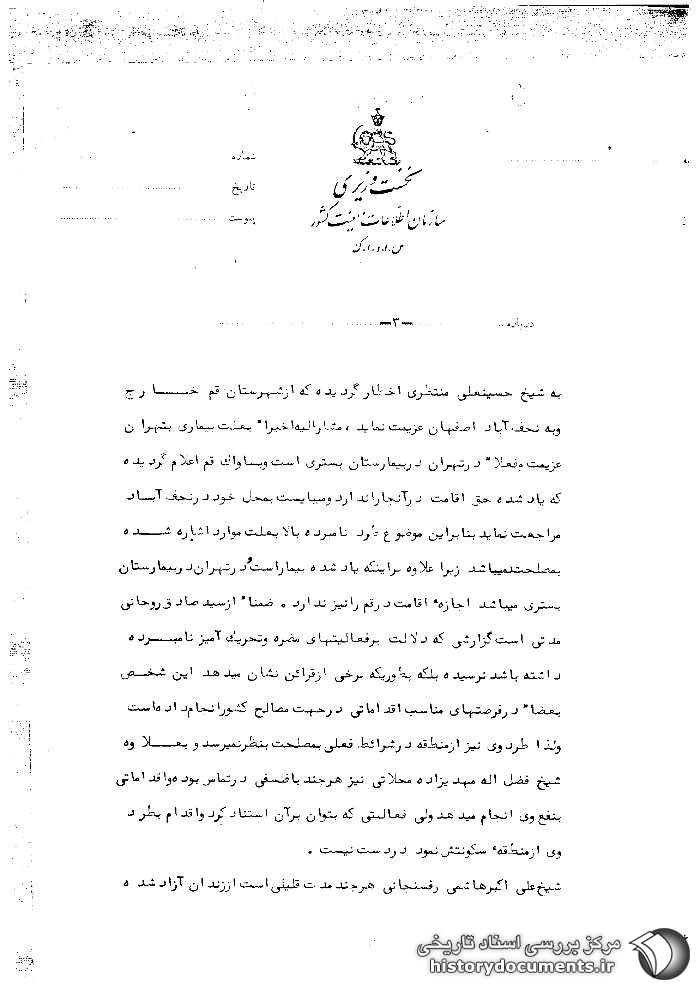 نخست وزیری
سازمان اطلاعات و امنیت کشور
س.ا.و.ا.ک
شماره
تاریخ
پیوست
به
درباره
ـ۳ـ
به شیخ حسینعلی منتظری اخطار گردیده که ازشهرستان قم خـــارج
وبه نجف آباد اصفهان عزیمت نماید ، مشارالیه اخیرا" بعلت بیماری بتهران
عزیمت وفعلا" درتهران دربیمارستان بستری است وبساواك قم اعلام گردیده
که یاد شده حق اقامت درآنجاراندارد ومیبایست بمحل خود درنجف آبـاد
مراجعت نماید بنابراین موضوع طرد نامبرده بالا بعلت موارد اشاره شـــده
بمصلحت نمیباشد زیرا علاوه براینکه یاد شده بیماراست و درتهران دربیمارستان
بستری میباشد اجازه ٔ اقامت درقم رانیز ندارد . ضمنا" ازسید صادق روحانی
مدتی است گزارشی که دلالت برفعالیتهای مضره وتحریك آمیز نامبــرده
داشته باشد نرسیده بلکه بطوریکه برخی ازقرائن نشان میدهد این شخـص
بعضا" درفرصتهای مناسب اقداماتی درجهت مصالح کشورانجام داده است
ولذا طرد وی نیز ازمنطقه درشرائط فعلی بمصلحت بنظرنمیرسد و بعـــلاوه
شیخ فضل اله مهدیزاده محلاتی نیز هرچند بافلسفی درتماس بوده واقداماتی
بنفع وی انجام میدهد ولی فعالیتی که بتوان برآن استناد کرد واقدام بطرد
وی ازمنطقه ٔ سکونتش نمود دردست نیست .
شیخ علی اکبرهاشمی رفسنجانی هرچند مدت قلیلی است اززندان آزاد شده
مرکز بررسی اسناد تاریخی
historydocuments.ir